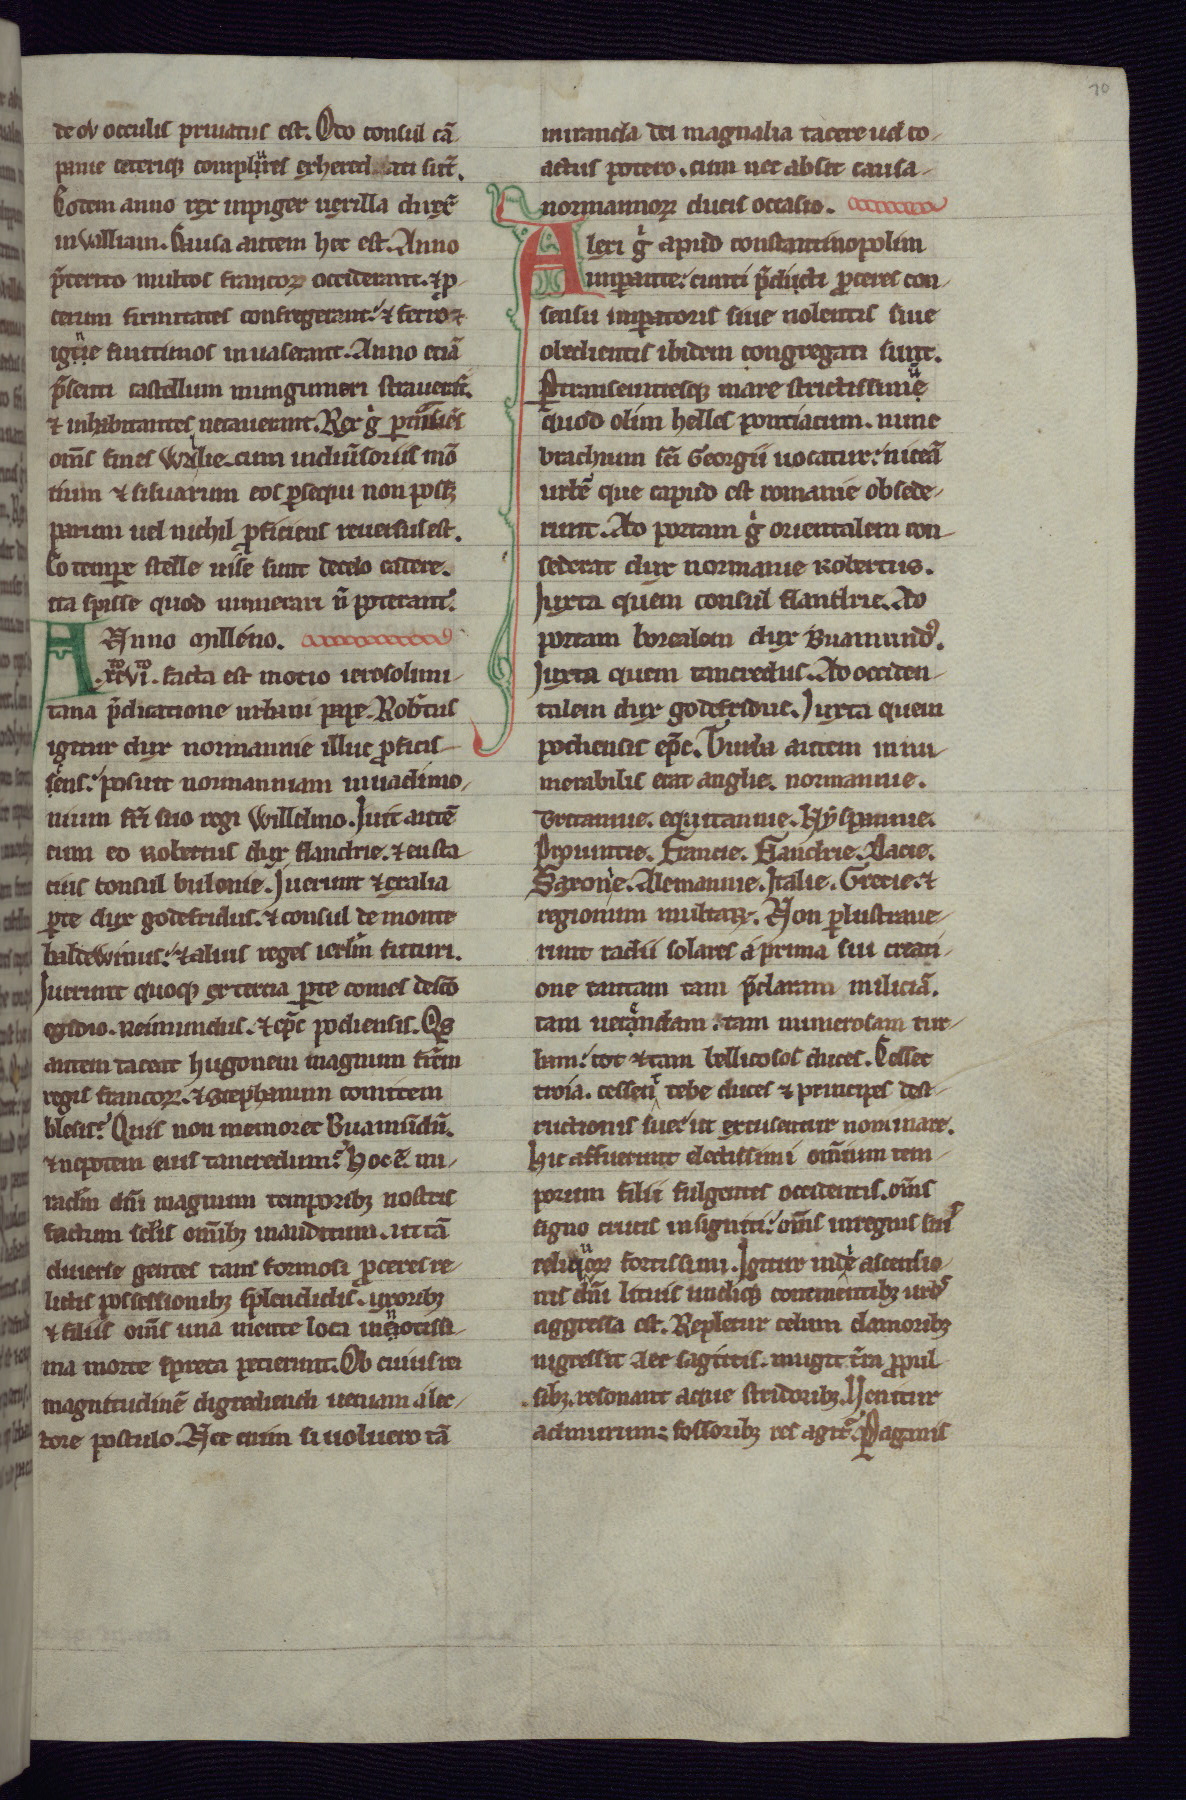 70
de ov occulis priuatus est. Odo consul cā
panie ceteriqȝ complures exheredati sūt.
Eodem anno rex inpiger uexilla duxit
in Walliam. Causa autem hec est. Anno
p̄terito multos francoꝝ occiderant. ⁊ p̱
cerum firmitates confregerant: ⁊ ferro ⁊
igne finitimos inuaserant. Anno etiā
p̄senti castellum mungumeri strauerūt.
⁊ inhabitantes necauerant. Rex g̊
om̄s fines Walie. cum in diuersoriis mō
tium ⁊ siluarum eos ꝑsequi non possȝ
parum uel nichil ꝓficiens reuersus est.
Eo tempore stelle uise sunt de celo cadere.
ita spisse quod numerari n̄ poterant.
Anno milleno.
.xcvi. facta est motio ierosolimi-
tana p̄dicatione urbani pape. Rob̄tus
igitur dux normannie illuc ꝓficis-
sens: posuit normanniam in uadimo-
nium fr̄i suo regi Willelmo. Iuit autē
cum eo Robertus dux flandrie. ⁊ eusta
cius consul bulonie. Iuerunt ⁊ exalia
ꝑte dux godefridus. ⁊ consul de monte
baldewinus: ⁊ alius reges ierl̄m futuri.
Iuerunt quoqȝ ex tercia ꝑte comes desc̄o
egidio. Reimundus. ⁊ ep̄c podiensis. Qis
autem taceat hugonem magnum fr̄em
regis francoꝝ. ⁊ stephanum comitem
blesis: Quis non memoret Buamūdū.
⁊ nepotem eius tancredum: Hoc ē mi-
raclm dn̄i magnum temporibȝ nostris
factum sclis om̄ibȝ inauditum. ut tā
diuerse gentes tam formosi ꝓceres re-
lictis possessionibȝ splendidis. uxoribȝ
⁊ filiis om̄s una mente loca
ma morte spreta petierunt. Ob cuius rei
magnitudinē digrediendi ueniam a lec-
tore postulo. Nec enim si uoluero tā
miranda dei magnalia tacere uel co-
actus potero. cum nec absit causa-
normannoꝝ ducis occasio.
Alexi g̊ apud constantinopolim
imꝑante: cunti p̄dicti ꝓceres con-
sensu imꝑatoris siue nolentis siue
obedientis ibidem congregati sunt.
Ptranseuntesqȝ mare strictissimū
quod olim helles pontiacum. nunc
brachium sc̄i Georgii uocatur: niceā
urbē que capud est romanie obsede-
runt. Ad portam g̊ orientalem con-
sederat dux normannie Robertus.
Iuxta quem consul flandrie. Ad
portam borealem dux Buamundꝰ.
Iuxta quem tancredus. Ad occiden-
talem dux godefridus. Iuxta quem
podiensis ep̄c. Turba autem innu-
merabilis erat anglie. normannie.
Britannie. equitannie. Hyspannie.
Prouincie. Francie. Flandrie. Dacie.
Saxonie. Alemannie. Italie. Grecie. ⁊
regionum multaꝝ. Non ꝑlustraue-
runt radii solares a prima sui creati-
one tantam tam p̄claram miliciā.
tam uerendam: tam numerosam tur-
bam: tot ⁊ tam bellicosos duces. Cesset
troia. cessent tebe duces ⁊ principes dest-
ructionis sue: ut excusentur nominare.
Hic affuerunt electissimi omnium tem-
porum filii fulgentes occidentis. om̄s
signo crucis insigniti: om̄s in regnis suis
reliquoꝝ fortissimi. Igitur in die ascensio-
nis dn̄i lituis undiqȝ concinentibȝ urbs
aggressa est. Repletur celum clamoribȝ
nigressit aer sagittis. mugit t̄ra ꝓpul-
sibȝ. resonant aque stridoribȝ. Venitur
ad murum: fossoribȝ res agit̄. Paganis